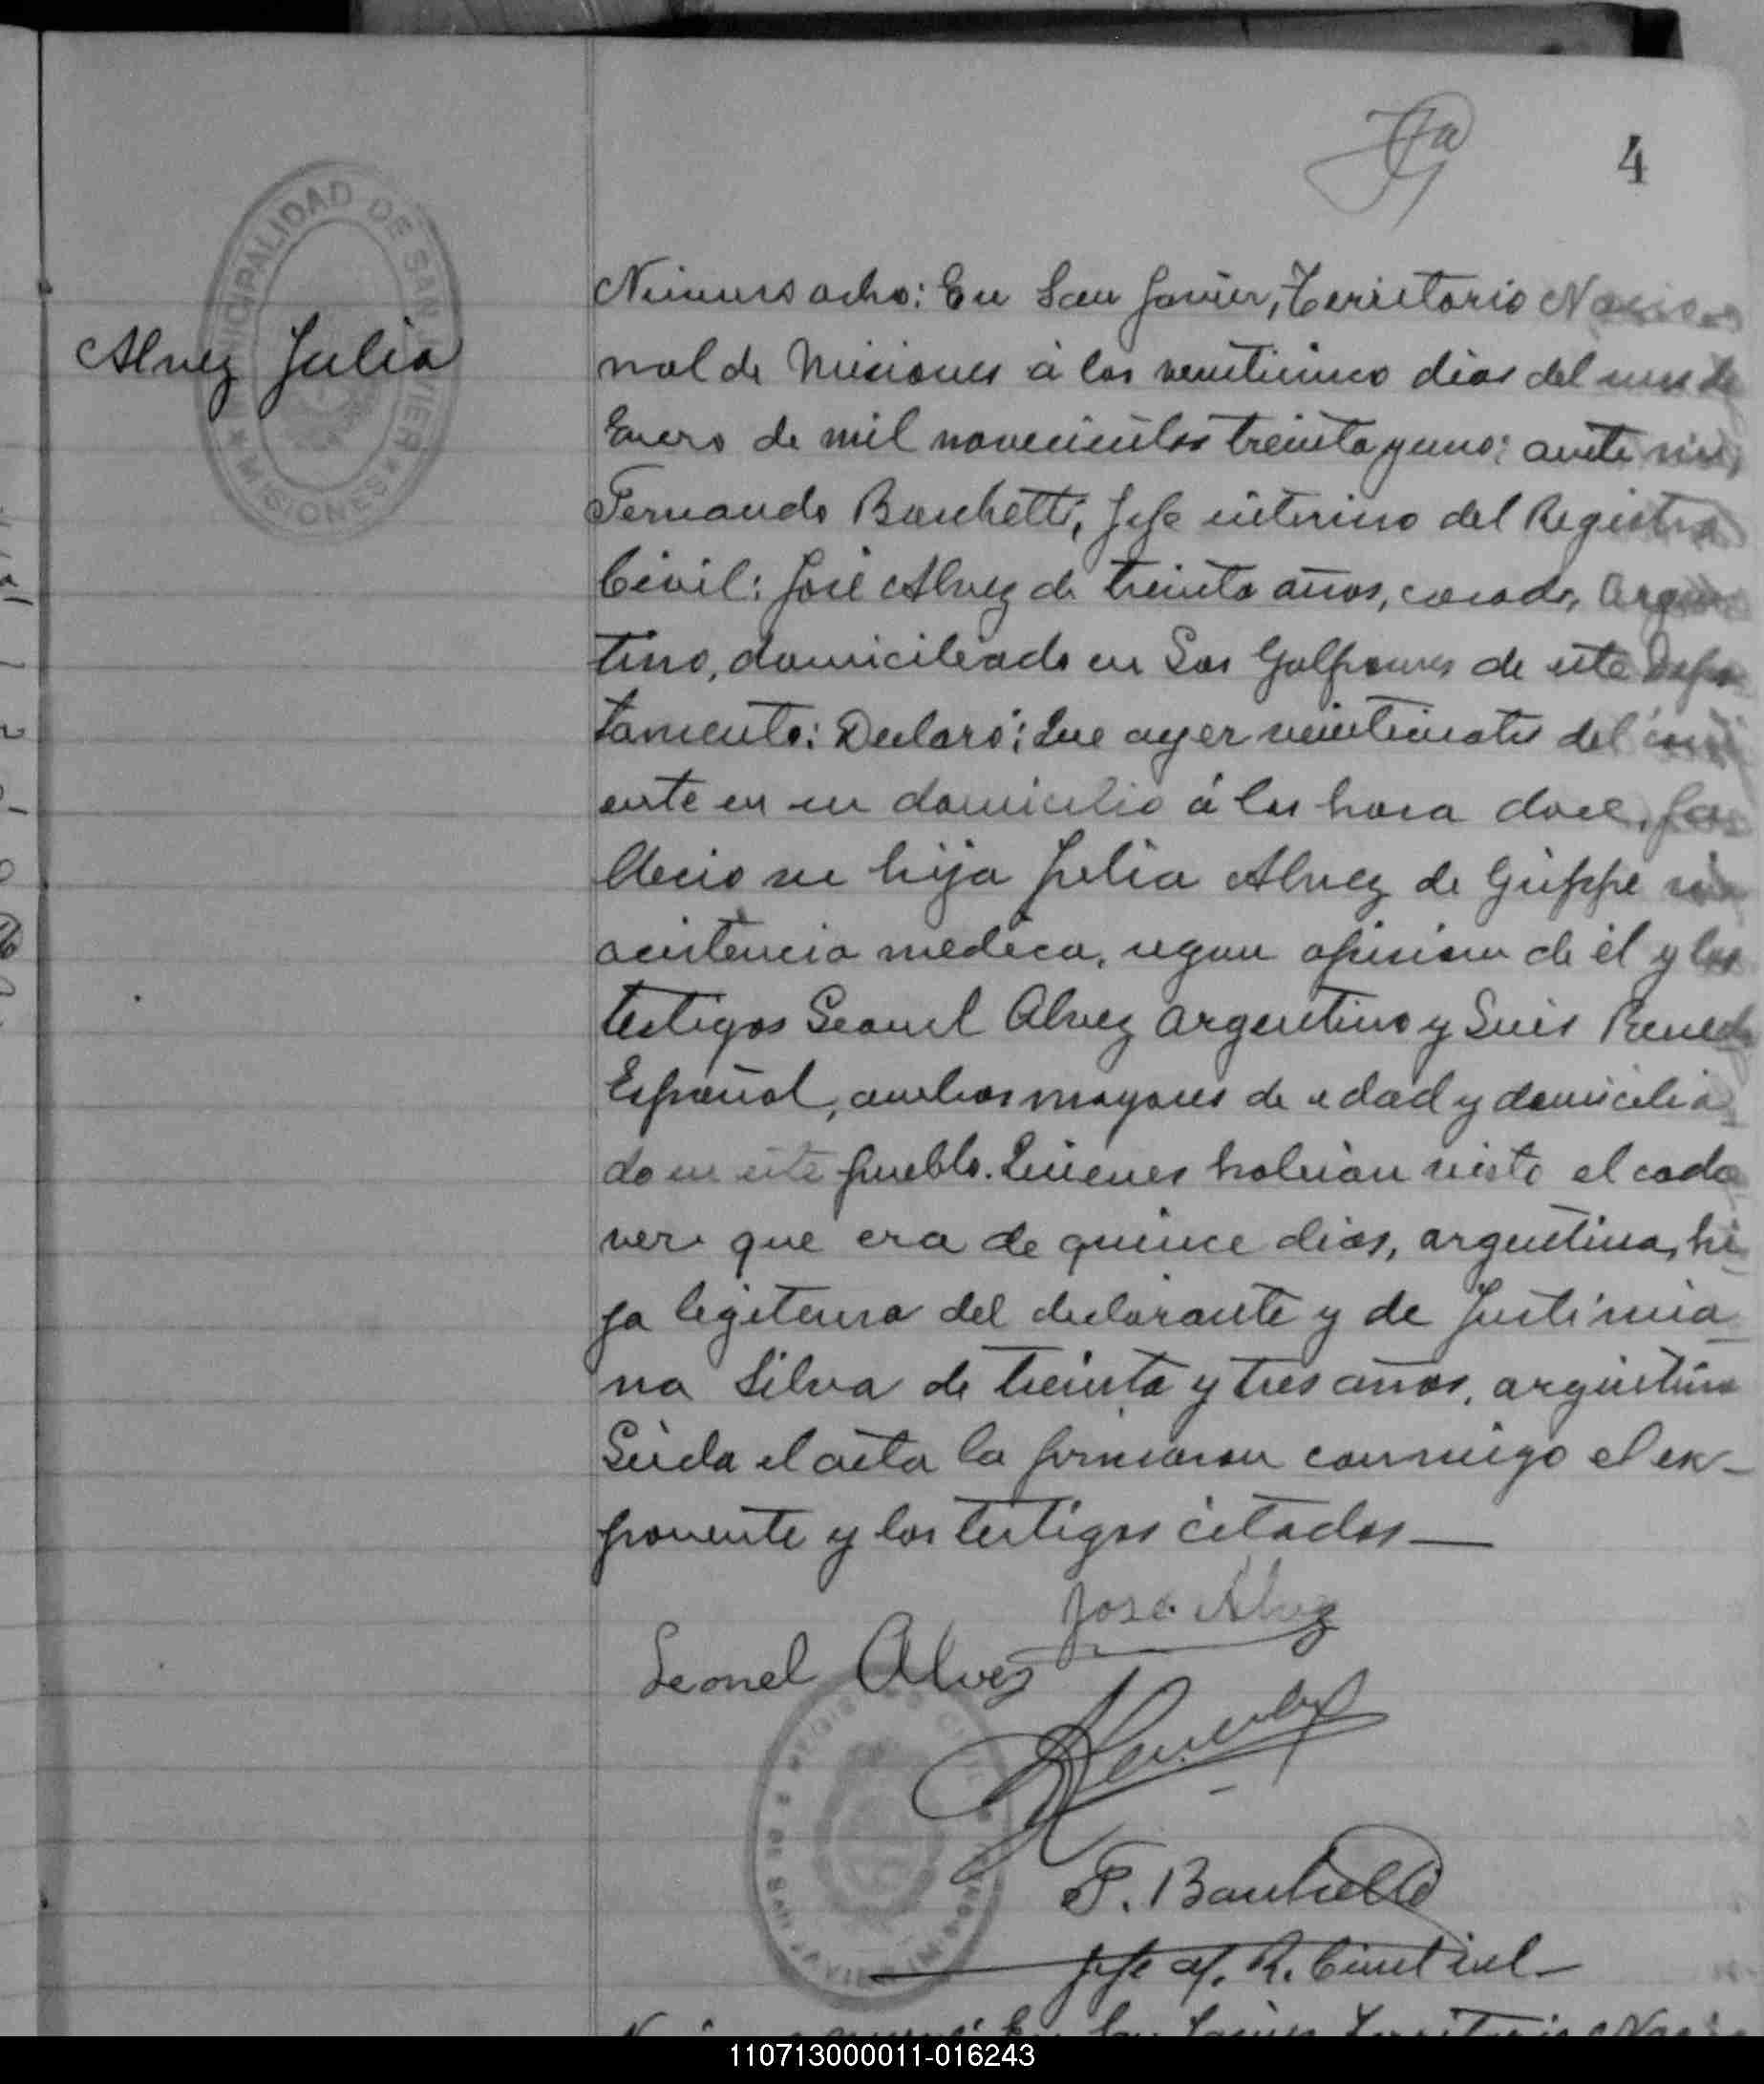 4
MUNICIPALIDAD DE SAN JAVIER
★ MISIONES ★
Alvez Julia
Numero ocho: En San Javier, Territorio Nacio
nal de Misiones á los veinticinco dias del mes de
Enero de mil novecientos treinta y uno; ante mi,
Fernando Banchetti, Jefe interino del Registro
Civil: José Alvez de treinta años, casado, Argen
tino, domiciliado en Los Galpones de este Depar
tamento: Declaró: Que ayer veinticuatro del corri
ente en su domicilio á las hora doce, fa
llecio su hija Julia Alvez de Grippe sin
asistencia medica, segun opinion de él y los
testigos Leonel Alvez Argentino y Luis
Español, ambos mayores de edad y domicilia
do en este pueblo. Quienes habian visto el cada
ver que era de quince dias, argentina, hi
ja legitima del declarante y de Justinia
na Silva de treinta y tres años, argentina
Leida el acta la firmaron conmigo el ex-
ponente y los testigos citados—
José Alvez
Leonel Alvez
REGISTRO CIVIL
DE SAN JAVIER MISIONES
F. Banchetti
Jefe R. Civil
110713000011-016243